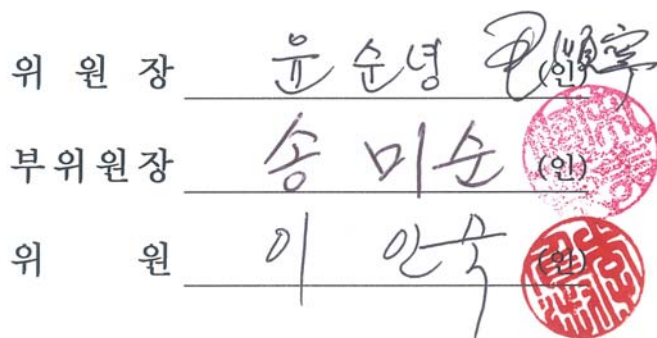 위 원 장 윤 순 녕 尹順寧 (인)
부위원장 송 미 순 (인)
위 원 이 인숙 (인)